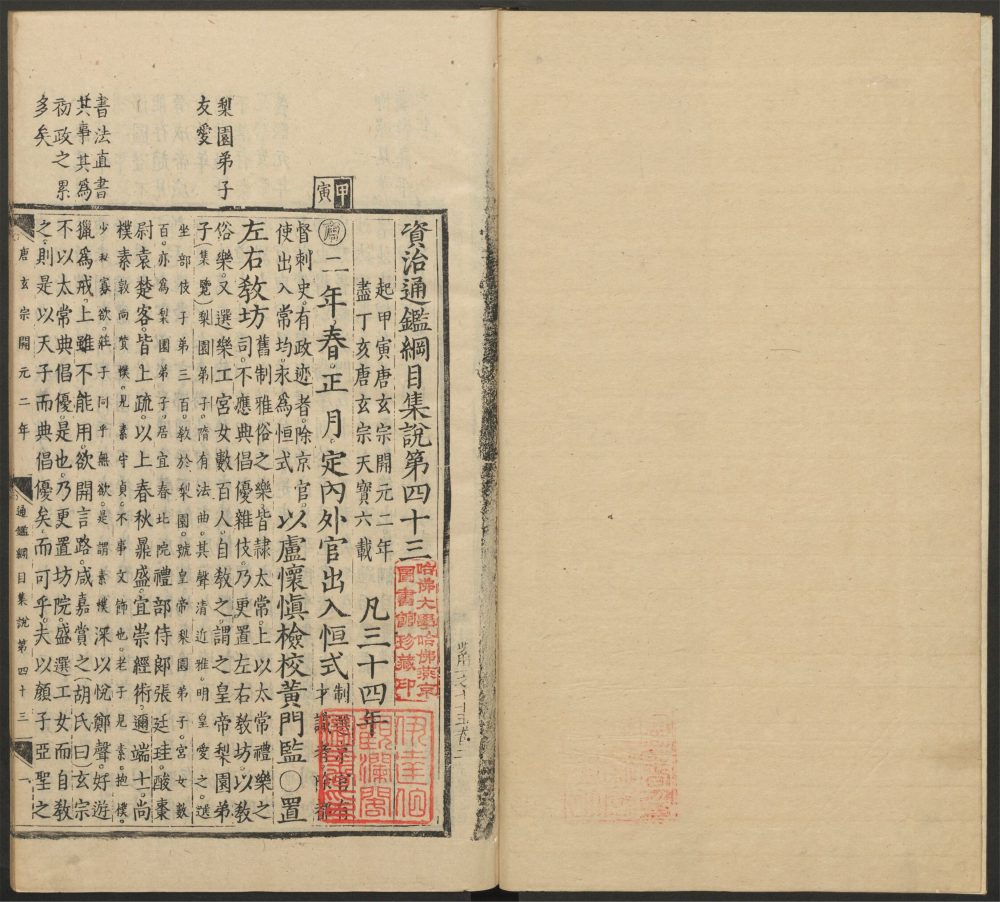 甲寅
梨園弟子
友愛
書法直書
其事其為
初政之累
多矣
資治通鑑綱目集說第四十三
起甲寅唐玄宗開元二年
盡丁亥唐玄宗天寶六載
凡三十四年
二年春正月定內外官出入恒式
制選京官有才識者除都
督刺史有政迹者除京官
使出入常均永爲恒式
以盧懷愼檢校黃門監○置
左右敎坊
舊制雅俗之樂皆隸太常上以太常禮樂之
司不應典倡優雜伎乃更置左右敎坊以敎
俗樂又選樂工宮女數百人自敎之謂之皇帝梨園弟
子(集覽)梨園弟子隋有法曲其聲清近雅明皇愛之選
坐部伎子弟三百敎於梨園號皇帝梨園弟子宮女數
百亦爲梨園弟子居宜春北院禮部侍郎張廷珪酸棗
尉袁楚客皆上疏以上春秋鼎盛宜崇經術邇端士尚
樸素敦尚質樸見素守貞不事文飾也老子見素抱樸
少私寡欲莊子同乎無欲是謂素樸深以悅鄭聲好遊
獵爲戒上雖不能用欲開言路咸嘉賞之(胡氏曰)玄宗
不以太常典倡優是也乃更置坊院盛選工女而自敎
之則是以天子而典倡優矣而可乎夫以顏子亞聖之
唐玄宗開元二年
通鑑綱目集說第四十三
一
哈佛大學哈佛燕京
圖書館珍藏印
伊達伯
觀瀾閣